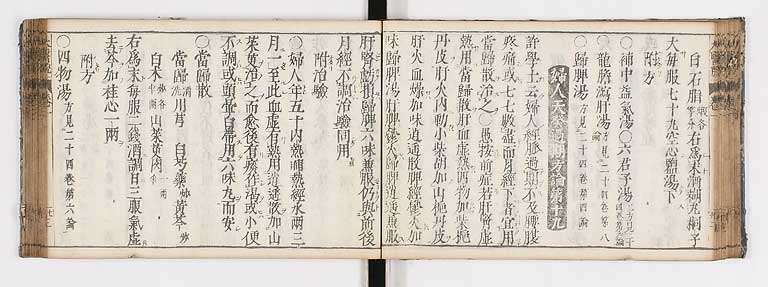 白石脂煅各等分 右爲末酒糊丸桐子
大每服七十丸空心鹽湯下
附方
○補中益氣湯○六君子湯
○龍膽瀉肝湯
○歸脾湯方見二十四卷第四論
婦人天癸過期方論第十九
許學士云婦人經脈過期不及腰腹
疼痛或七七數盡而月經下者宜用
當歸散治之○愚按前症若肝腎虛
熱用當歸散肝血虛熱四物加柴梔
丹皮肝火內動小柴胡加山梔丹皮
肝火血燥加味逍遥散脾經鬱火加
味歸脾湯肝脾鬱火歸脾逍遥兼服
肝腎虧損歸脾六味兼服仍與前後
月經不調治驗同用
附治驗
○婦人年五十內熱晡熱經水兩三
月一至此血虛有熱用逍遥散加山
茱萸治之而愈後有瘀作瀉或小便
不調或頭暈白帶用六味丸而安
○當歸散
當歸酒洗 川芎 白芍藥炒 黃芩炒
白朮 山茱萸肉
右爲末每服二錢酒調日三服氣虛
去芩加桂心一兩
附方
○四物湯方見二十四卷第六論